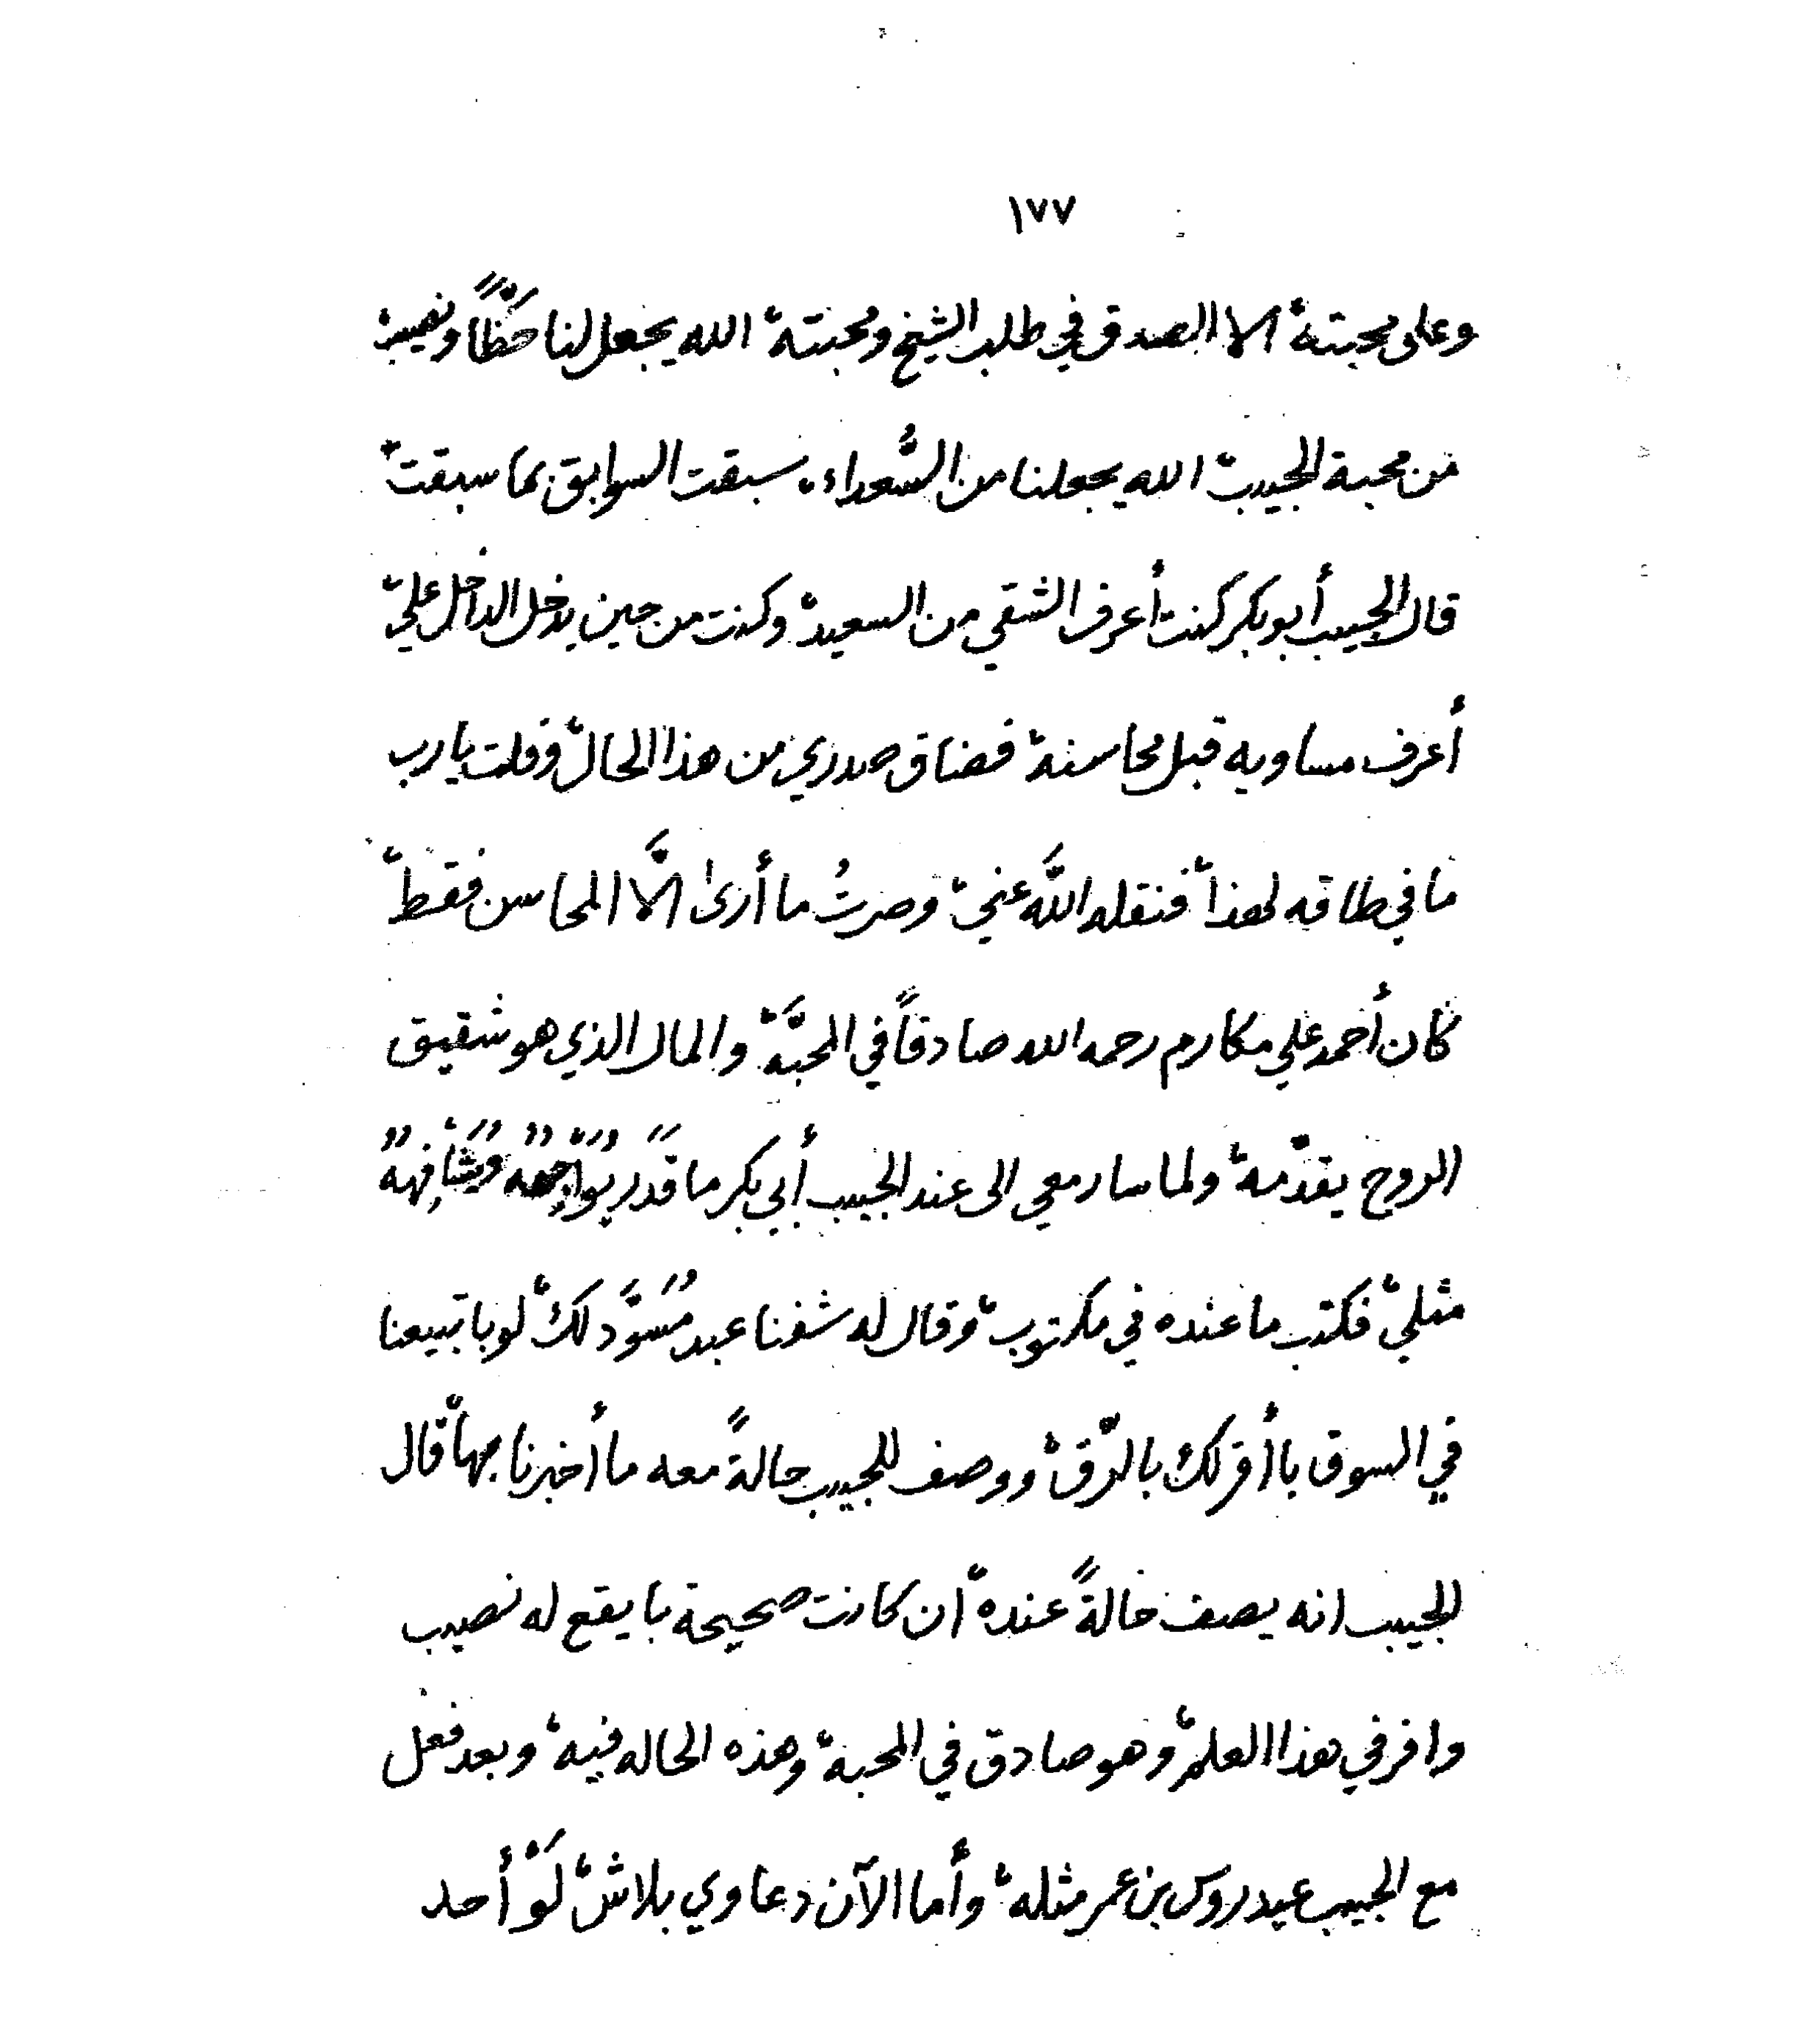 ١٧٧
وعلى محبته، الا الصدق في طلب الشيخ ومحبته، الله يجعل لنا حَظّاً ونصيب
من محبة الحبيب، الله يجعلنا من السُّعداء، سبقت السوابق بما سبقت،
قال الحبيب أبوبكر كنت أعرف الشقي من السعيد، وكنت من حين يدخل الداخل علي،
أعرف مساويه قبل محاسنه، فضاق صدري من هذا الحال، وقلت يارب
ما في طاقه لهذا، فنقله اللَّه عني، وصرتُ ما أرىٰ الَّا المحاسن فقط،
كان أحمد علي مكارم رحمه الله صادقاً في المحبَّة، والمال الذي هو شقيق
الروح يقدّمه، ولما سار معي الى عند الحبيب أبي بكر ما قَدَر يُوَاجِهُه ويُشَافِهُهُ
مثلي، فكتب ما عنده في مكتوب، وقال له شفنا عبد مُسَوَّد لك، لو باتبيعنا
في السوق با أقر لك بالرّق، ووصف للحبيب حالةً معه ما أخبرنا بها، قال
الحبيب انه يصف حالةً عنده، ان كانت صحيحة با يقع له نصيب
وافر في هذا العلم، وهو صادق في المحبة، وهذه الحاله فيه، وبعد فعل
مع الحبيب عيدروس بن عمر مثله، وأما الآن دعاوي بلاش، لَوْ أحد